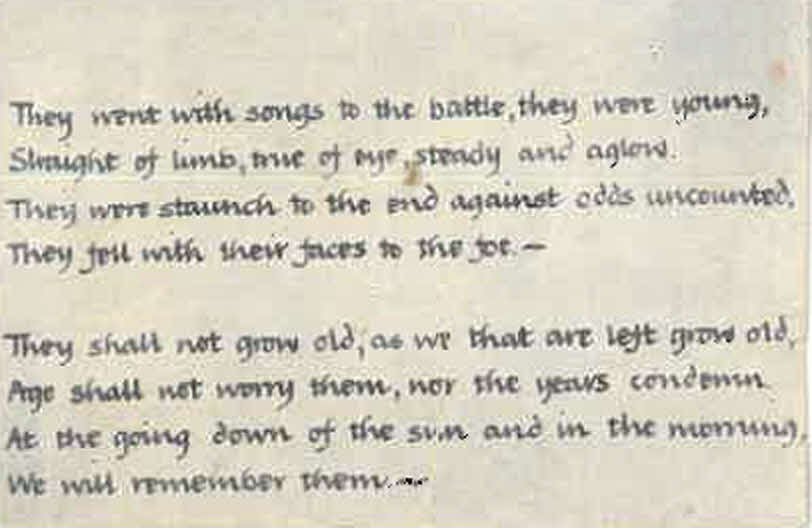 They went with songs to the battle, they were young,
Straight of limb, true of eye, steady and aglow.
They were staunch to the end against odds uncounted,
They fell with their faces to the foe.—
They shall not grow old, as we that are left grow old,
Age shall not worry them, nor the years condemn.
At the going down of the sun and in the morning,
We will remember them.—